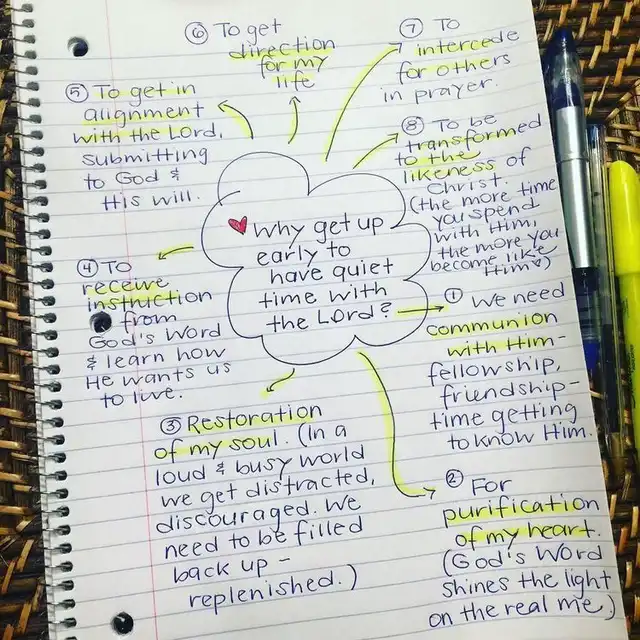 ♥ Why get up
early to
have quiet
time with
the LORD?
① We need
communion
with Him-
fellowship,
friendship-
time getting
to know Him.
② For
purification
of my heart.
(God's Word
shines the light
on the real me)
③ Restoration
of my soul. (In a
loud & busy world
we get distracted,
discouraged. We
need to be filled
back up -
replenished.)
④ To
receive
instruction
from
God's Word
& learn how
He wants us
to live.
⑤ To get in
alignment
with the Lord,
submitting
to God &
His will.
⑥ To get
direction
for my
life
⑦ To
intercede
for others
in prayer.
⑧ To be
transformed
to the
likeness of
Christ.
(the more time
you spend
with Him,
the more you
become like
Him♡)